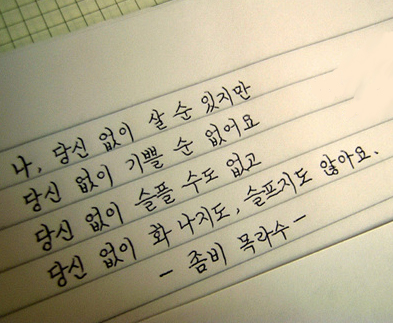 나, 당신 없이 살 순 있지만
당신 없이 기쁠 순 없어요
당신 없이 슬플 수도 없고
당신 없이 화 나지도, 슬프지도 않아요.
- 좀비 목라수 -